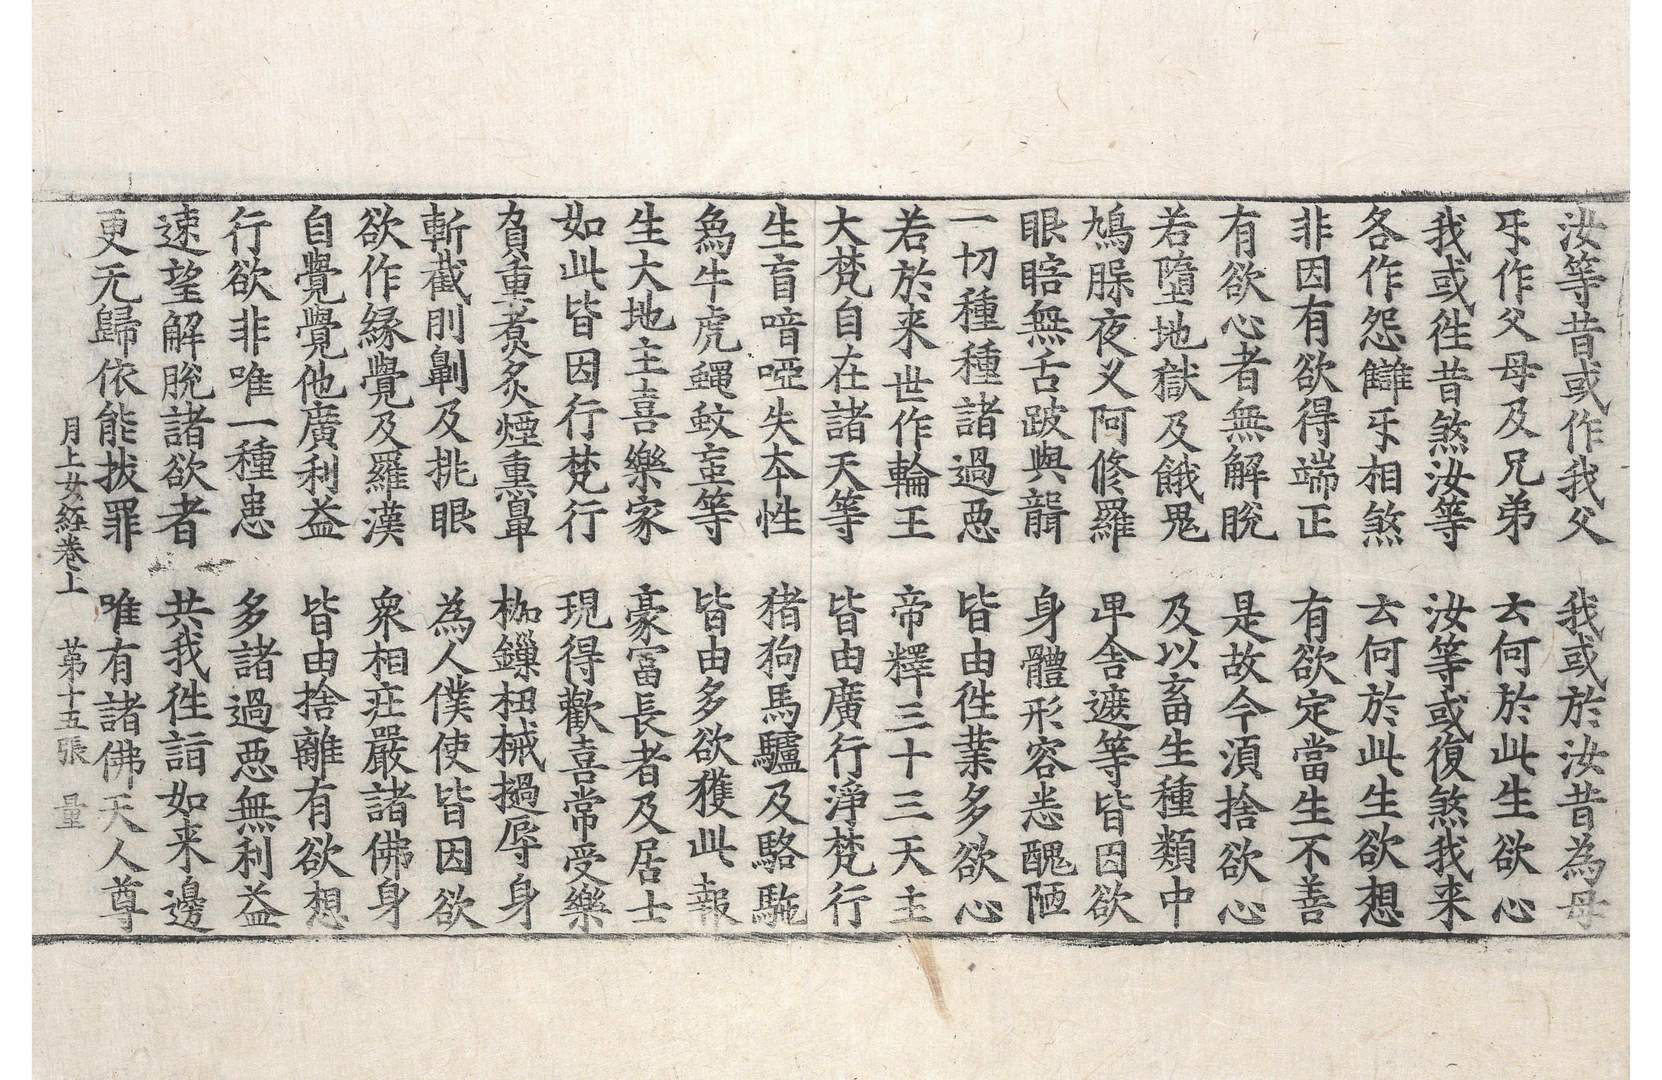 汝等昔或作我父　我或於汝昔為母
㸦作父母及兄弟　去何於此生欲心
我或徃昔煞汝等　汝等或復煞我来
各作怨讎㸦相煞　去何於此生欲想
非因有欲得端正　有欲定當生不善
有欲心者無解脫　是故今湏捨欲心
若墮地獄及餓鬼　及以畜生種類中
鳩脲夜叉阿修羅　毕舎遮等皆因欲
眼瞎無舌跛與躃　身體形容恙醜陋
一切種種諸過恶　皆由徃業多欲心
若於来世作輪王　帝釋三十三天主
大梵自在諸天等　皆由廣行淨梵行
生盲喑啞失夲性　猪狗馬驢及駱駞
爲牛虎蝇蚊䖟等　皆由多欲獲此報
生大地主喜樂家　豪富長者及居士
如此皆因行梵行　現得歡喜常受樂
負重煑炙煙熏鼻　枷鏁杻械撾辱身
斬截刖劓及挑眼　為人僕使皆因欲
欲作緣覺及羅漢　衆相庄嚴諸佛身
自覺覺他廣利益　皆由捨離有欲想
行欲非唯一種患　多諸過恶無利益
速望解脫諸欲者　共我徃詣如来邊
更无歸依能拔罪　唯有諸佛天人尊
月上女経巻上　苐十五張　量